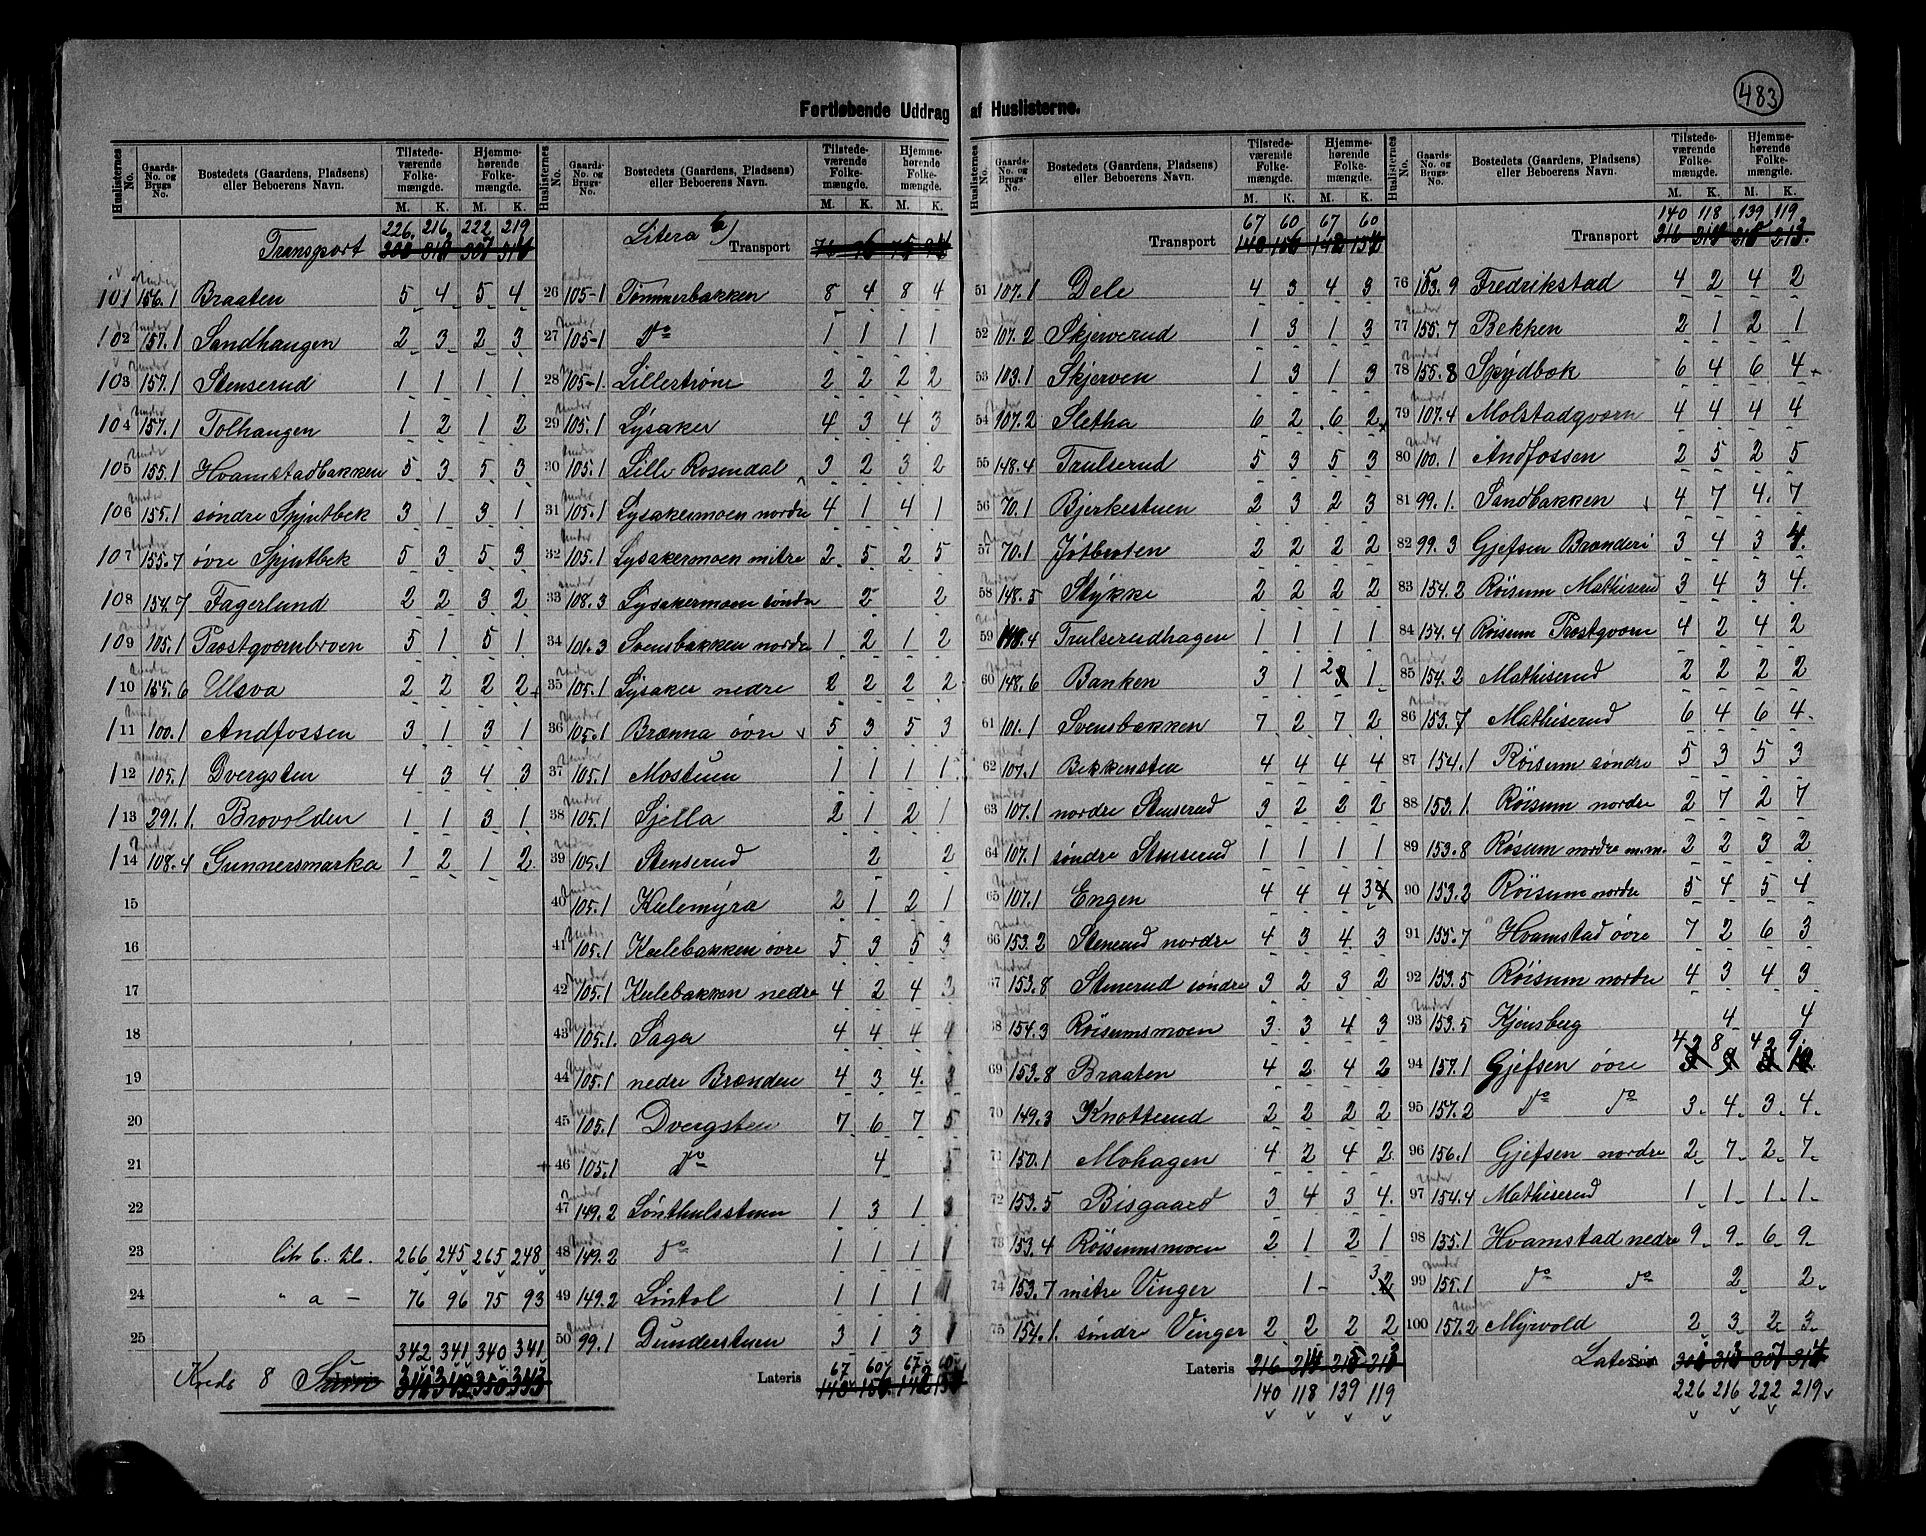 483
Fortløbende Uddrag af Huslisterne.
Huslisternes No. Gaards-No. og Brugs-No. Bostedets (Gaardens, Pladsens) eller Beboerens Navn. Tilstedeværende Folkemængde. M. K. Hjemmehørende Folkemængde. M. K.
226. 216 222 219
Transport
101 under 156.1 Braaten 5 4 5 4
102 under 157.1 Sandhaugen 2 3 2 3
103 157.1 Stenserud 1 1 1 1
104 under 157.1 Tolhaugen 1 2 1 2
105 under 155.1 Hvamstadbakken 5 3 5 3
106 under 155.1 søndre Spjutbek 3 1 3 1
107 under 155.7 øvre Spjutbek 5 3 5 3
108 154.7 Fagerlund 2 2 3 2
109 under 105.1 Prostqværnbroen 5 1 5 1
110 under 155.6 Ulsva 2 2 2 2
111 100.1 Andfossen 3 1 3 1
112 under 105.1 Dvergsten 4 3 4 3
113 under 291.1. Brovolden 1 1 3 1
114 under 108.4 Gunnersmarka 1 2 1 2
15
16
17
18
19
20
21
22
23 litr b. til. 266 245 265 248
24 " a - 76 96 75 93
25 342 341 340 341
Kreds 8 Sum
Huslisternes No. Gaards-No. og Brugs-No. Bostedets (Gaardens, Pladsens) eller Beboerens Navn. Tilstedeværende Folkemængde. M. K. Hjemmehørende Folkemængde. M. K.
Litera b) Transport
26 under 105-1 Tømmerbakken 8 4 8 4
27 under 105-1 do 1 1 1 1
28 under 105-1. Lillestrøm 2 2 2 2
29 under 105.1 Lysaker 4 3 4 3
30 under 105.1 Lille Rosendal 3 2 3 2
31 under 105.1 Lysakermoen nordre 4 1 4 1
32 under 105.1 Lysakermoen mitre 2 5 2 5
33 under 108.3 Lysakermoen søndre 2 2
34 101.3 Svensbakken nordre 1 2 1 2
35 under 105.1 Lysaker nedre 2 2 2 2
36 under 105.1 Brænna øvre 5 3 5 3
37 under 105.1 Mostuen 1 1 1 1
38 under 105.1 Sjella 2 1 2 1
39 under 105.1 Stenserud 2 2
40 under 105.1 Kulemyra 2 1 2 1
41 under 105.1 Kulebakken øvre 5 3 5 3
42 under 105.1 Kulebakken nedre 4 2 4 3
43 under 105.1. Saga 4 4 4 4
44 under 105.1 nedre Brænden 4 3 4. 3
45 under 105.1 Dvergsten 7 6 7 5
46 105.1 do 4 5
47 under 149.2 Lønthulsstuen 1 3 1 3
48 under 149.2 do 1 1 1 1
49 149.2 Løntol 1 1 1 1
50 under 99.1 Dunderstuen 3 1 3 1
Lateris 67 60 67 60
Huslisternes No. Gaards-No. og Brugs-No. Bostedets (Gaardens, Pladsens) eller Beboerens Navn. Tilstedeværende Folkemængde. M. K. Hjemmehørende Folkemængde. M. K.
67 60 67 60
Transport
51 under 107.1 Dele 4 3 4 3
52 under 107.2 Skjerverud 1 3 1 3
53 103.1 Skjerven 1 3 1 3
54 under 107.2 Sletha 6 2 6 2
55 148.4 Trulserud 5 3 5 3
56 under 70.1 Bjerkestuen 2 3 2 3
57 under 70.1 Jøtbroten 2 2 2 2
58 under 148.5 Stykke 2 2 2 2
59 148.4 Trulserudhagen 1 1 1 1
60 under 148.6 Banken 3 1 2 1
61 101.1 Svensbakken 7 2 7 2
62 107.1 Bekkensten 4 4 4 4
63 under 107.1 nordre Stenserud 3 2 2 2
64 under 107.1 søndre Stenserud 1 1 1 1
65 under 107.1 Engen 4 4 4 3
66 under 153.2 Stenerud nordre 4 3 4 3
67 under 153.8 Stenerud søndre 3 2 3 2
68 under 154.3 Røisumsmoen 3 3 4 3
69 under 153.8 Braaten 4 2 4 2
70 149.3 Knotterud 2 2 2 2
71 150.1 Mohagen 4 2 4 2
72 153.5 Bisgaard 3 4 3 4.
73 153.4 Røisumsmoen 2 1 2 1
74 under 153.7 mitre Vinger 1 3
75 under 154.1. søndre Vinger 2 2 2 2
Lateris
140 118 139 119
Huslisternes No. Gaards-No. og Brugs-No. Bostedets (Gaardens, Pladsens) eller Beboerens Navn. Tilstedeværende Folkemængde. M. K. Hjemmehørende Folkemængde. M. K.
140 118 139 119
Transport
76 153.9 Fredrikstad 4 2 4 2
77 under 155.7 Bekken 2 1 2 1
78 under 155.8 Spydbæk 6 4 6 4
79 under 107.4 Molstadqværn 4 4 4 4
80 under 100.1 Andfossen 2 5 2 5
81 99.1. Sandbakken 4 7 4. 7
82 99.3 Gjefsen Brænderi 3 4 3 4.
83 154.2 Røisum Mathiserud 3 4 3 4.
84 154.4 Røisum Prostqværn 4 2 4 2
85 under 154.2 Mathiserud 2 2 2 2
86 under 153.7 Mathiserud 6 4 6 4.
87 154.1 Røisum søndre 5 3 5 3
88 153.1. Røisum nordre 2 7 2 7
89 153.8 Røsum nordre m.m. 2 2 3 2
90 153.2 Røisum nordre 5 4 5 4
91 155.7 Hvamstad øvre 7 2 6 3
92 153.5 Røisum nordre 4 3 4 3
93 under 153.5 Kjensberg 4 4
94 157.1 Gjefsen øvre 42 8 42 9.
95 157.2 do do 3. 4. 3. 4.
96 156.1 Gjefsen nordre 2 7 2 7
97 under 154.4 Mathiserud 1 1 1 1
98 155.1 Hvamstad nedre 9 9 6 9
99 under 155.1 do do 2 2
100 under 157.2 Myrvold 2 3 2 3
Lateris
226 216 222 219